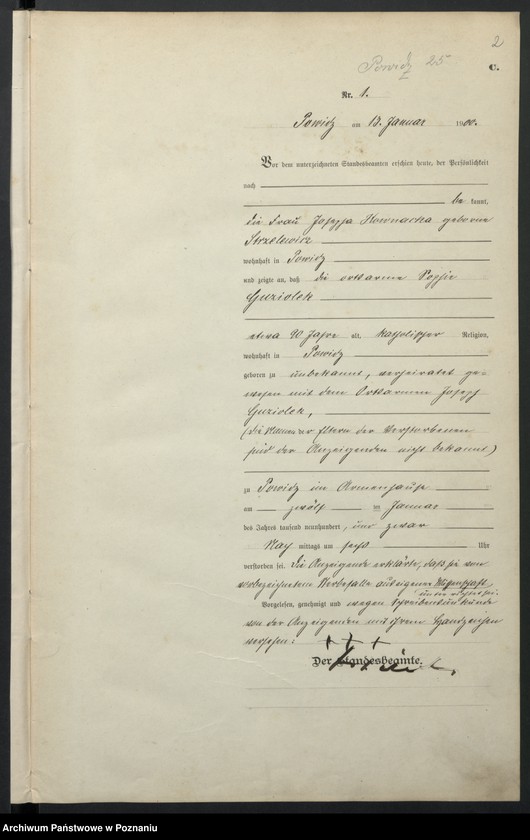 2
Powidz 25
C.
Nr. 1.
Powidz am 13. Januar 1900.
Vor dem unterzeichneten Standesbeamten erschien heute, der Persönlichkeit
nach
be kannt,
die Frau Josepha geborne
Strzelewicz
wohnhaft in Powidz
und zeigte an, daß die ortsarme Sophie
Guziolek
etwa 90 Jahre alt, katholischer Religion,
wohnhaft in Powidz
geboren zu unbekannt, verheiratet ge-
wesen mit dem Ortsarmen Joseph
Guziolek,
(die Namen der Eltern der Verstorbenen
sind der Anzeigenden nicht bekannt)
zu Powidz im Armenhause
am zwölf ten Januar
des Jahres tausend neunhundert, und zwar
Nach mittags um sechs Uhr
verstorben sei. Die Anzeigende erklärte, daß sie von
vorbezeichnetem Sterbefalle aus eigener Wissenschaft
unterrichtet sei.
Vorgelesen, genehmigt und wegen Schreibensunkunde
von der Anzeigenden mit ihrem Handzeichen
versehen: + + +
Der Standesbeamte.
Archiwum Państwowe w Poznaniu